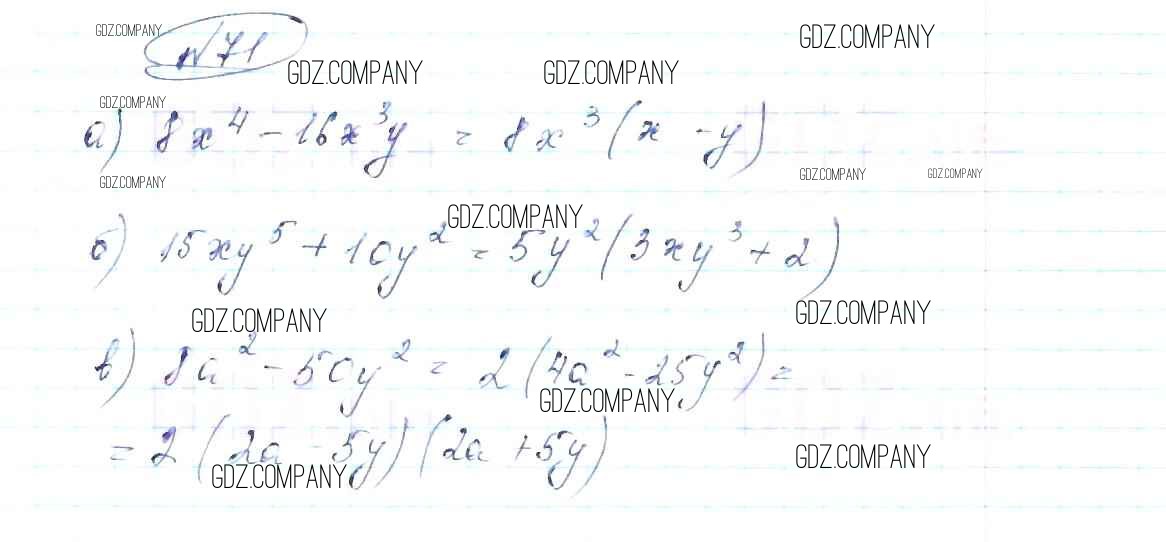 GDZ.COMPANY
№71
GDZ.COMPANY
GDZ.COMPANY GDZ.COMPANY
GDZ.COMPANY
а) 8x⁴ - 16x³y = 8x³(x - y)
GDZ.COMPANY GDZ.COMPANY GDZ.COMPANY
GDZ.COMPANY
б) 15xy⁵ + 10y² = 5y²(3xy³ + 2)
GDZ.COMPANY GDZ.COMPANY
в) 8a² - 50y² = 2(4a² - 25y²) =
GDZ.COMPANY
= 2(2a - 5y)(2a + 5y)
GDZ.COMPANY GDZ.COMPANY